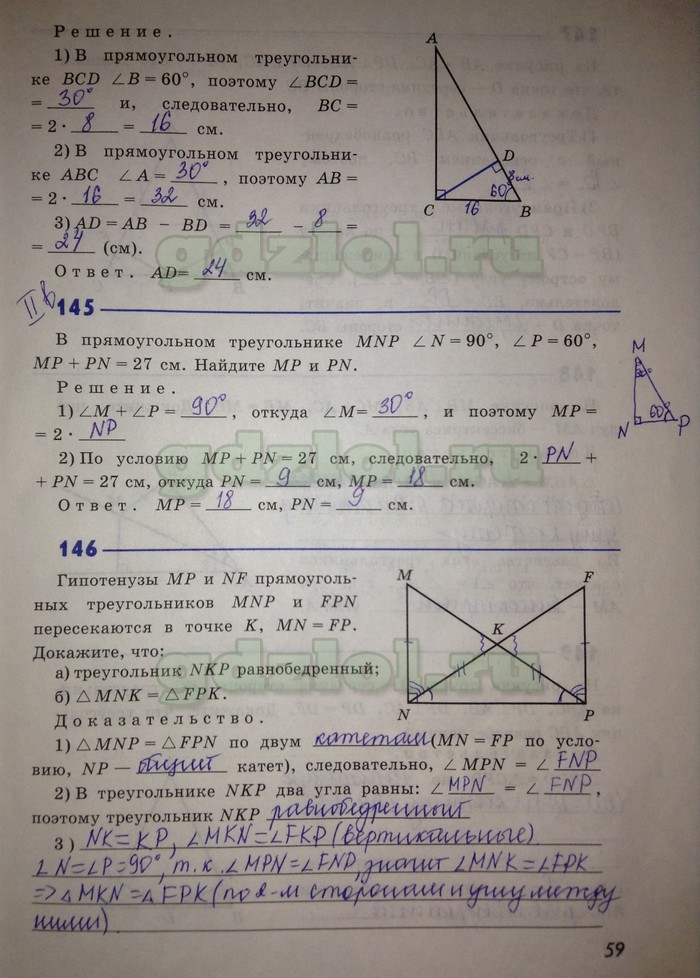 Решение.
1) В прямоугольном треугольни-
ке BCD ∠B = 60°, поэтому ∠BCD =
= 30° и, следовательно, BC =
= 2 · 8 = 16 см.
2) В прямоугольном треугольни-
ке ABC ∠A = 30°, поэтому AB =
= 2 · 16 = 32 см.
3) AD = AB − BD = 32 − 8 =
= 24 (см).
Ответ. AD= 24 см.
A
D
8 см.
60°
C 16 B
gdzlol.ru
II в
145
В прямоугольном треугольнике MNP ∠N = 90°, ∠P = 60°,
MP + PN = 27 см. Найдите MP и PN.
Решение.
1) ∠M + ∠P = 90°, откуда ∠M= 30°, и поэтому MP =
= 2 · NP
2) По условию MP + PN = 27 см, следовательно, 2 · PN +
+ PN = 27 см, откуда PN = 9 см, MP = 18 см.
Ответ. MP = 18 см, PN = 9 см.
M
30°
60°
N P
gdzlol.ru
146
Гипотенузы MP и NF прямоуголь-
ных треугольников MNP и FPN
пересекаются в точке K, MN = FP.
Докажите, что:
а) треугольник NKP равнобедренный;
б) △MNK = △FPK.
M F
K
N P
gdzlol.ru
Доказательство.
1) △MNP = △FPN по двум катетам (MN = FP по усло-
вию, NP — общий катет), следовательно, ∠MPN = ∠FNP
2) В треугольнике NKP два угла равны: ∠MPN = ∠FNP,
поэтому треугольник NKP равнобедренный
3) NK=KP, ∠MKN=∠FKP (вертикальные)
∠N=∠P=90°, т.к. ∠MPN=∠FNP, значит ∠MNK=∠FPK
=> △MKN=△FPK (по 2-м сторонам и углу между
ними).
59